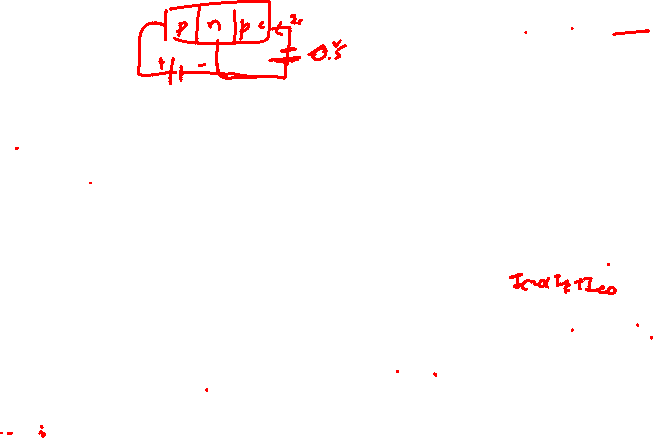 p n p c
+ - 0.5
Ic=αIE+Ico